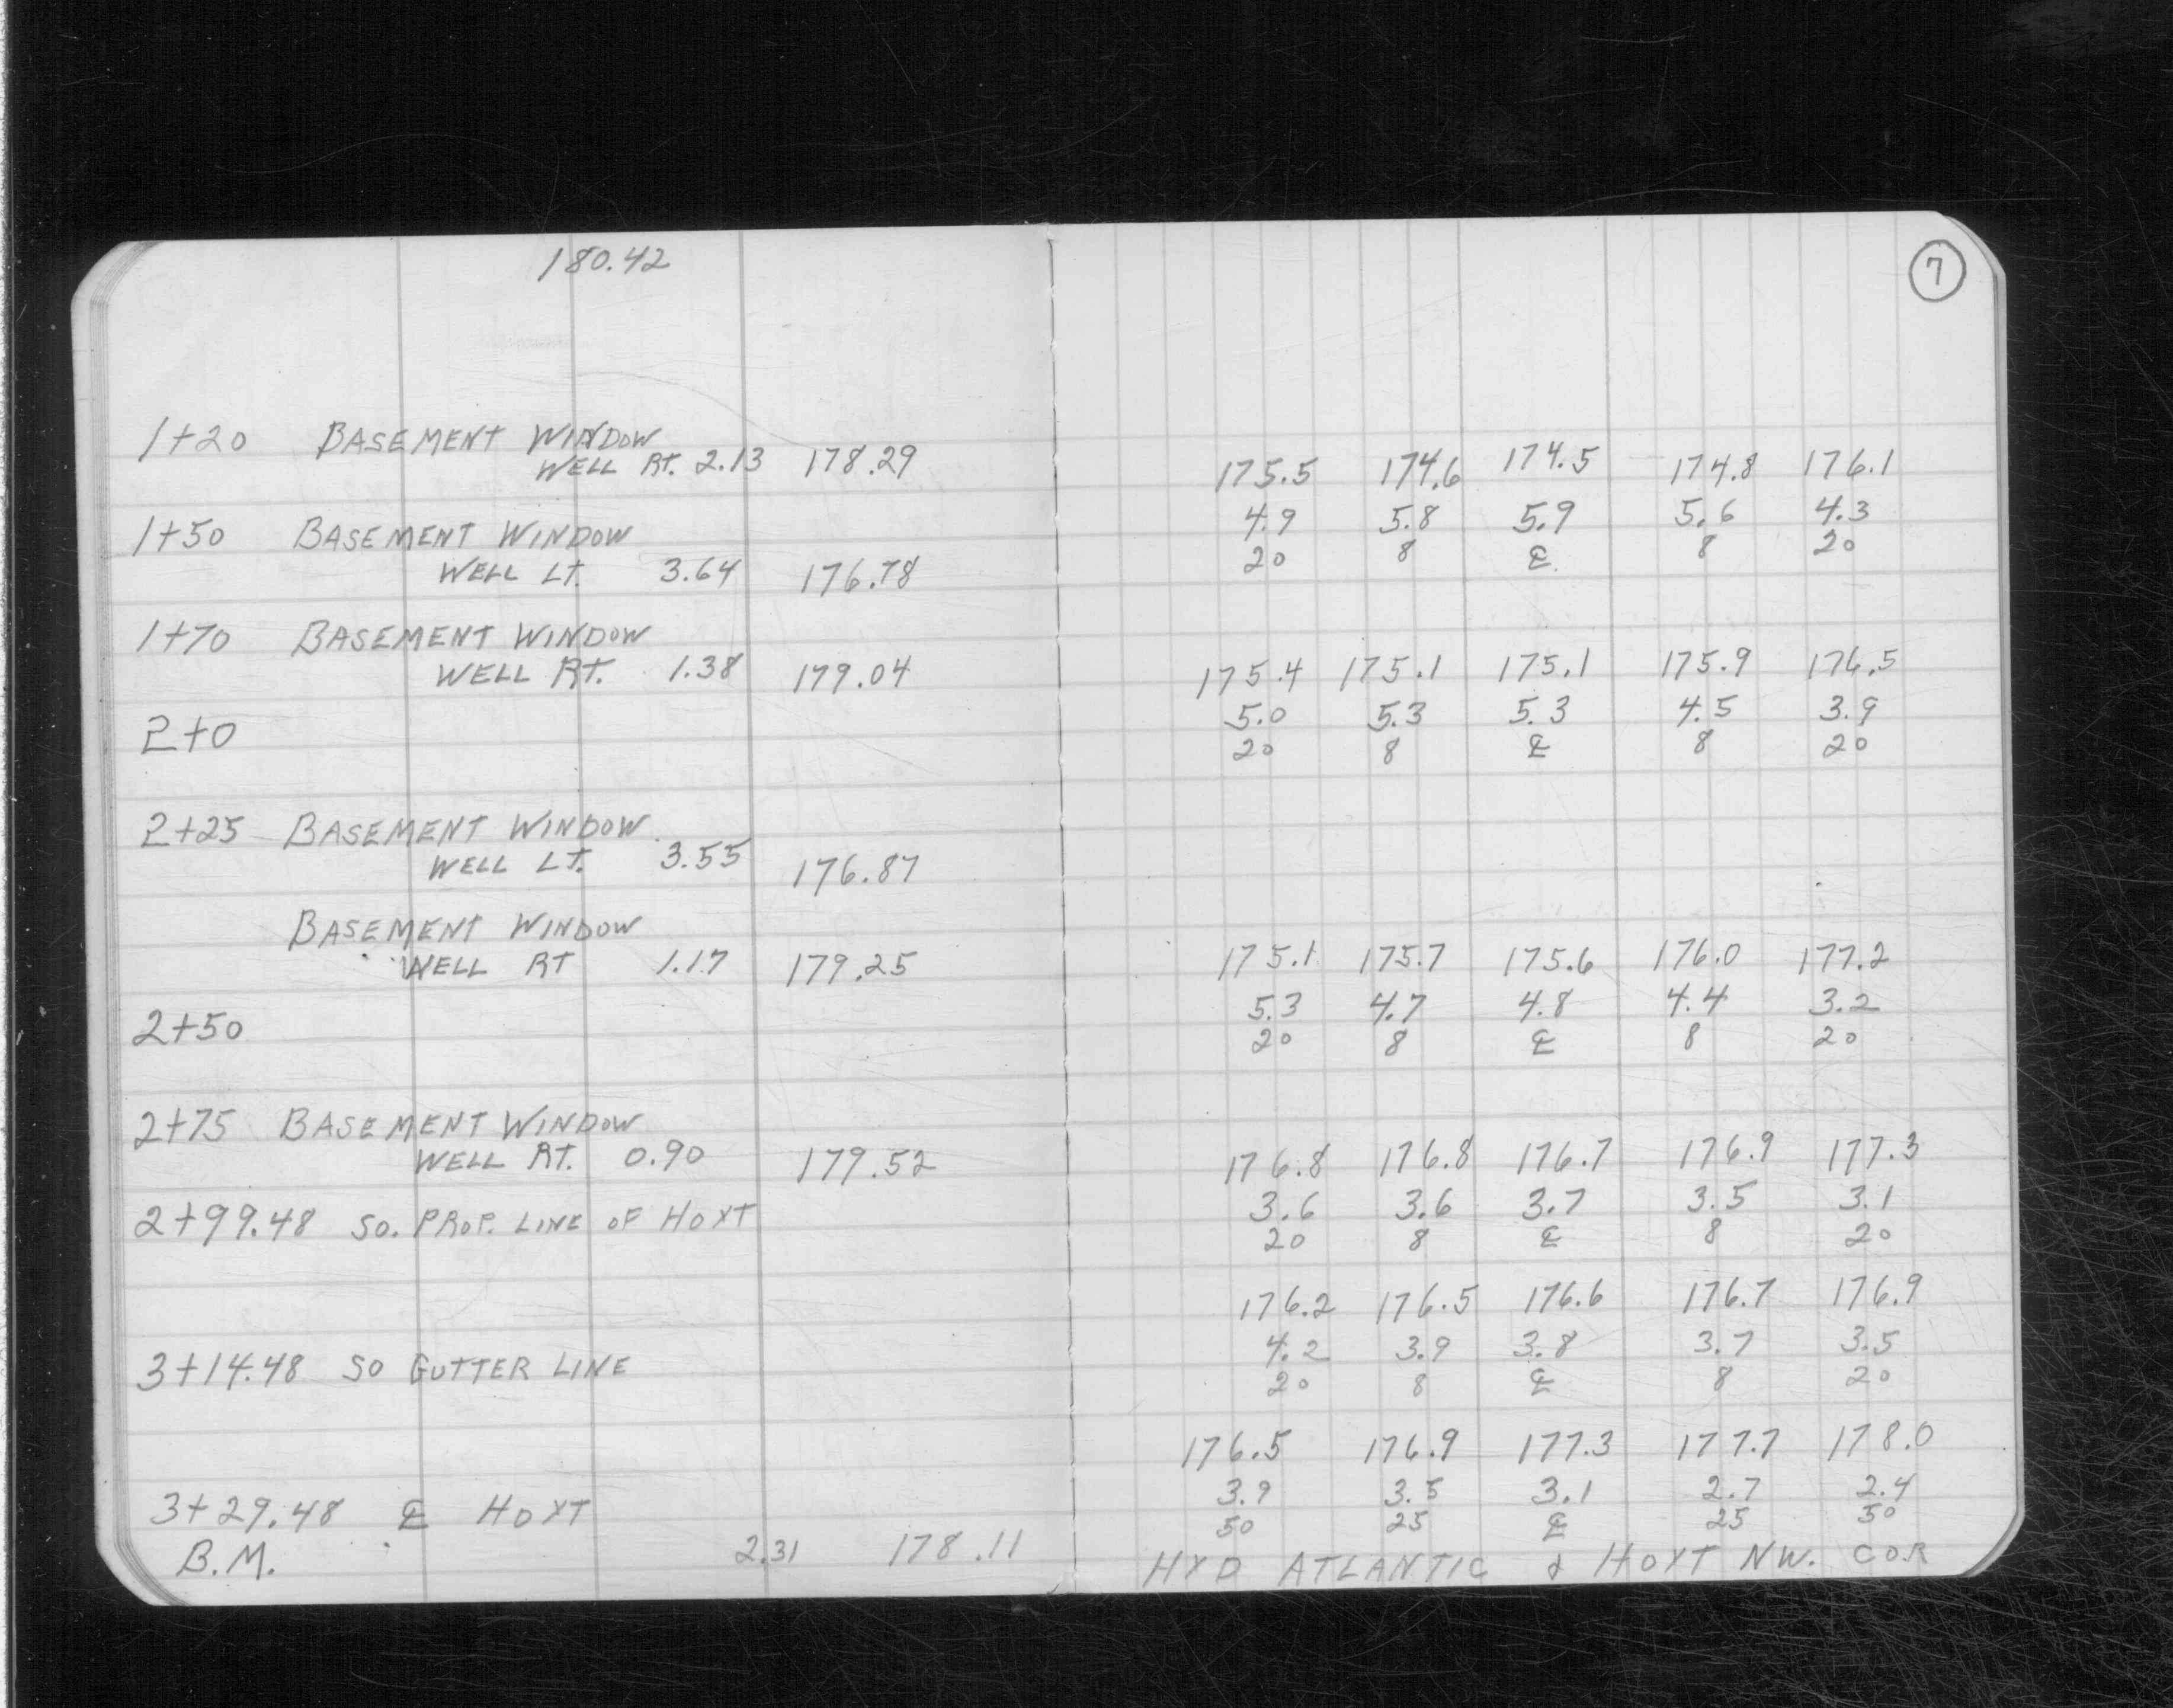 180.42
7
1+20 BASEMENT WINDOW
WELL RT. 2.13 178.29
175.5 174.6 174.5 174.8 176.1
4.9 5.8 5.9 5.6 4.3
20 8 ℄ 8 20
1+50 BASEMENT WINDOW
WELL LT. 3.64 176.78
1+70 BASEMENT WINDOW
WELL RT. 1.38 179.04
175.4 175.1 175.1 175.9 176.5
5.0 5.3 5.3 4.5 3.9
20 8 ℄ 8 20
2+0
2+25 BASEMENT WINDOW
WELL LT. 3.55 176.87
BASEMENT WINDOW
WELL RT 1.17 179.25
175.1 175.7 175.6 176.0 177.2
5.3 4.7 4.8 4.4 3.2
20 8 ℄ 8 20
2+50
2+75 BASEMENT WINDOW
WELL RT. 0.90 179.52
176.8 176.8 176.7 176.9 177.3
3.6 3.6 3.7 3.5 3.1
20 8 ℄ 8 20
2+99.48 SO. PROP. LINE OF HOYT
176.2 176.5 176.6 176.7 176.9
4.2 3.9 3.8 3.7 3.5
20 8 ℄ 8 20
3+14.48 SO GUTTER LINE
176.5 176.9 177.3 177.7 178.0
3.9 3.5 3.1 2.7 2.4
50 25 ℄ 25 50
3+29.48 ℄ HOYT
B.M. 2.31 178.11 HYD ATLANTIC & HOYT NW. COR